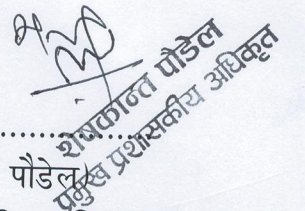 शेषकान्त पौडेल
प्रमुख प्रशासकीय अधिकृत
....................
पौडेल)